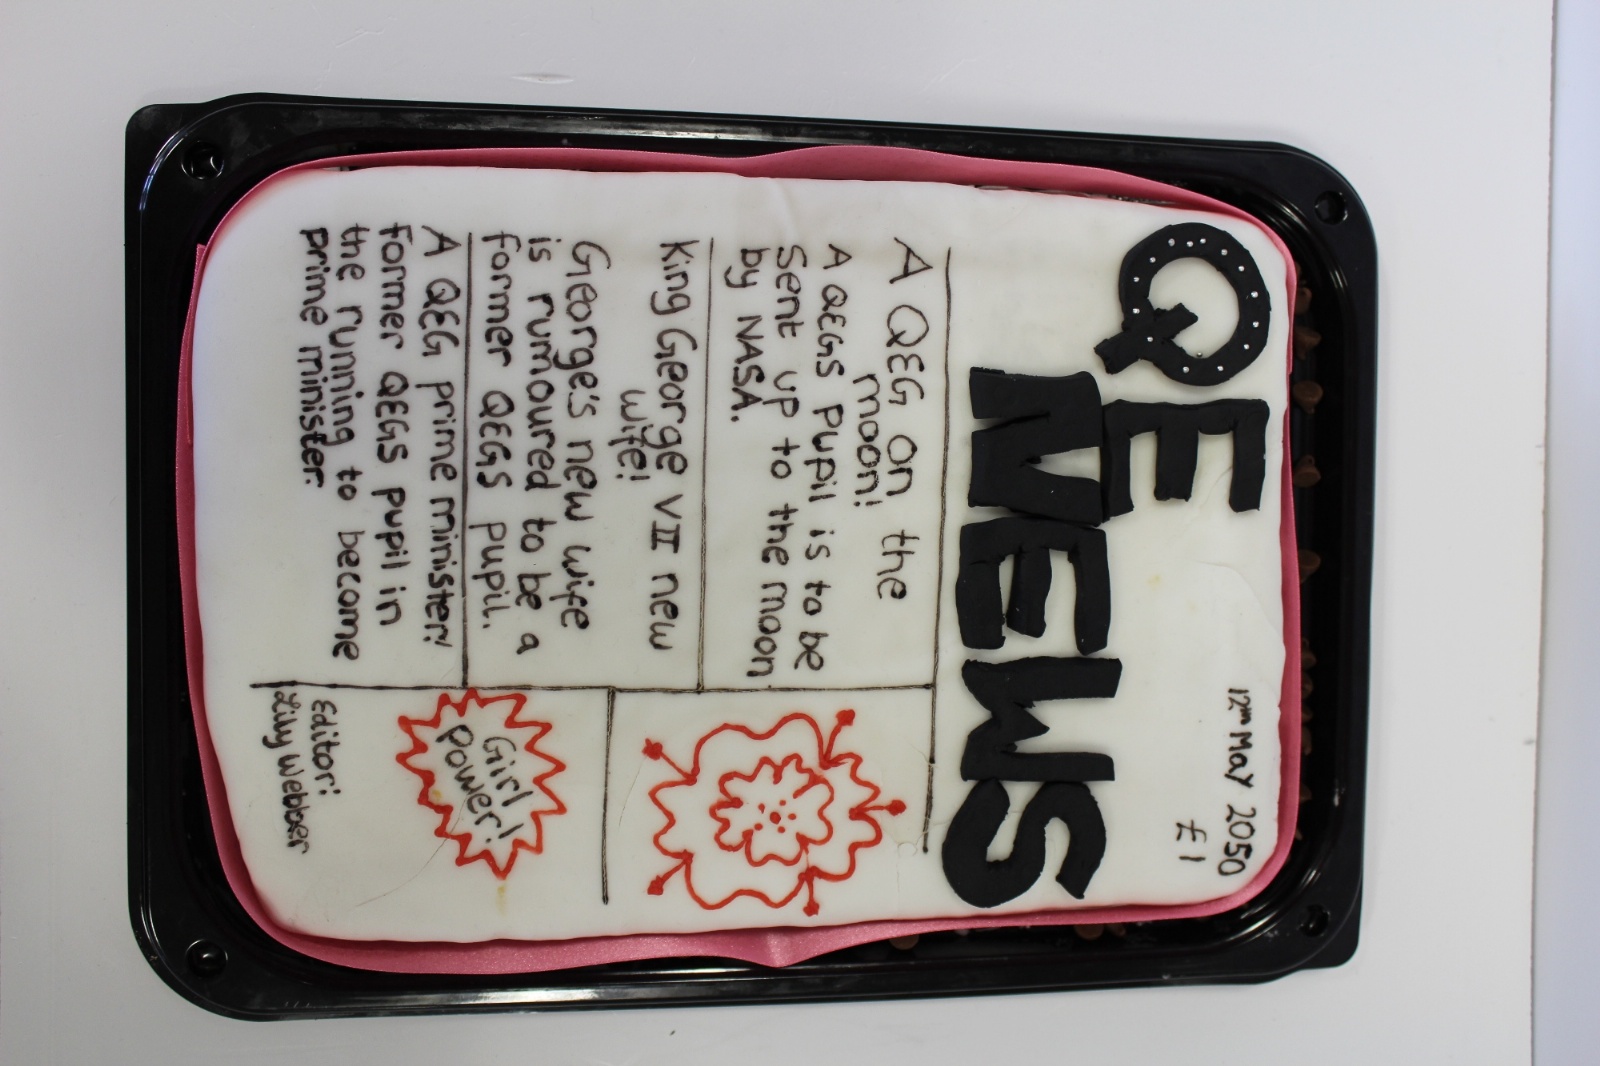 12th May 2050
£1
QE
NEWS
A QEG on the
moon!
A QEGS pupil is to be
Sent up to the moon
by NASA.
King George VII new
wife!
George's new wife
is rumoured to be a
former QEGS pupil.
A QEG prime minister!
Former QEGS pupil in
the running to become
prime minister.
Girl
power!
Editor:
Lily Webber